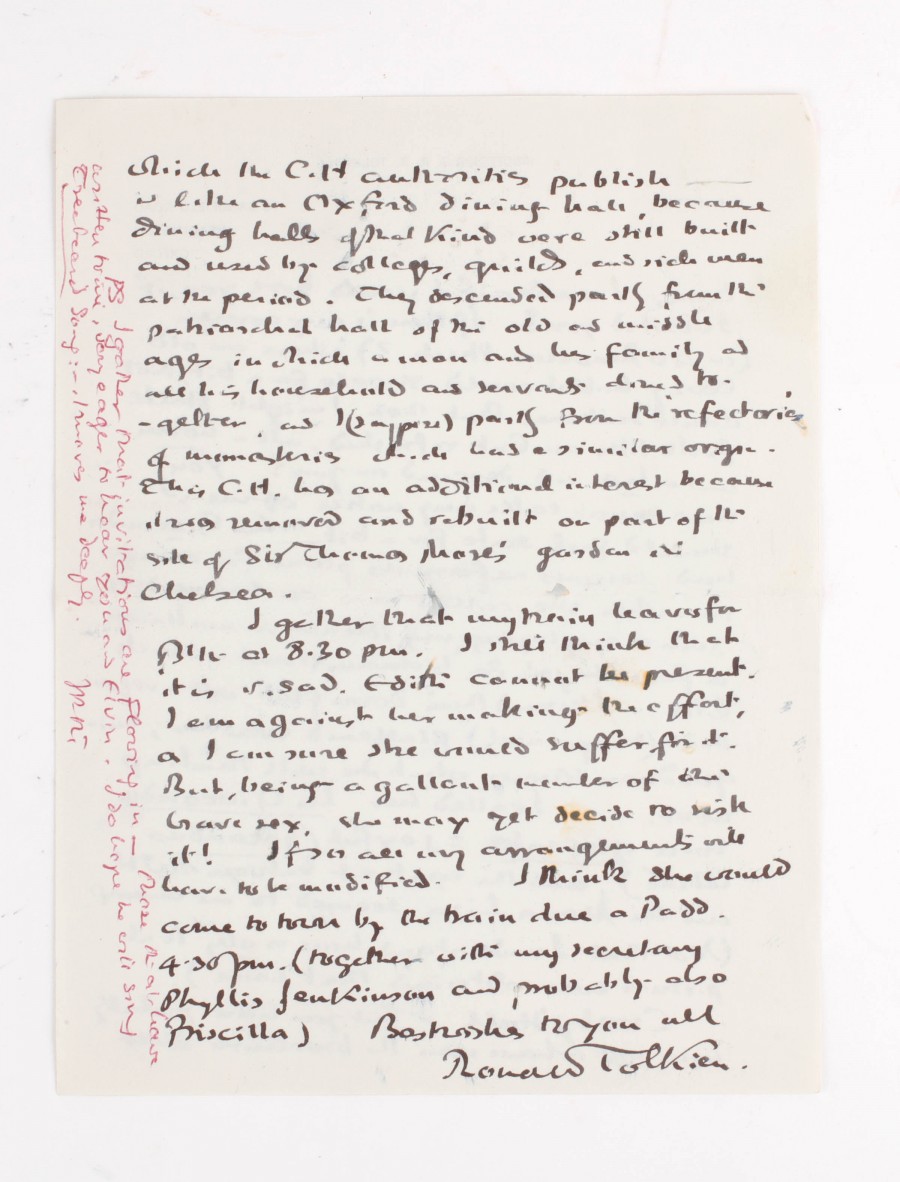 which the C.H authorities publish —
is like an Oxford dining hall, because
dining halls of that kind were still built
and used by colleges, guilds, and rich men
at the period. They descended partly from the
patriarchal hall of the old and middle
ages in which a man and his family and
all his household and servants dined to-
-gether, and (I suppose) partly from the refectories
of monasteries which had a similar origin.
This C.H. has an additional interest because
it was removed and rebuilt on part of the
site of Sir Thomas More's garden in
Chelsea.
I gather that my train leaves for
B'th at 8.30 pm. I still think that
it is v. sad. Edith cannot be present.
I am against her making the effort,
as I am sure she would suffer for it.
But, being a gallant member of the
brave sex, she may yet decide to risk
it! If so all my arrangements will
have to be modified. I think she would
come to town by the train due at Padd.
4.30 pm. (together with my secretary
Phyllis Jenkinson and probably also
Priscilla) Best wishes to you all
Ronald Tolkien.
PS I gather that invitations are flowing in — those that have
written to me, very eager to hear you and Elvin. I do hope he will sing
Treebeard song: – it moves me deeply. JRRT